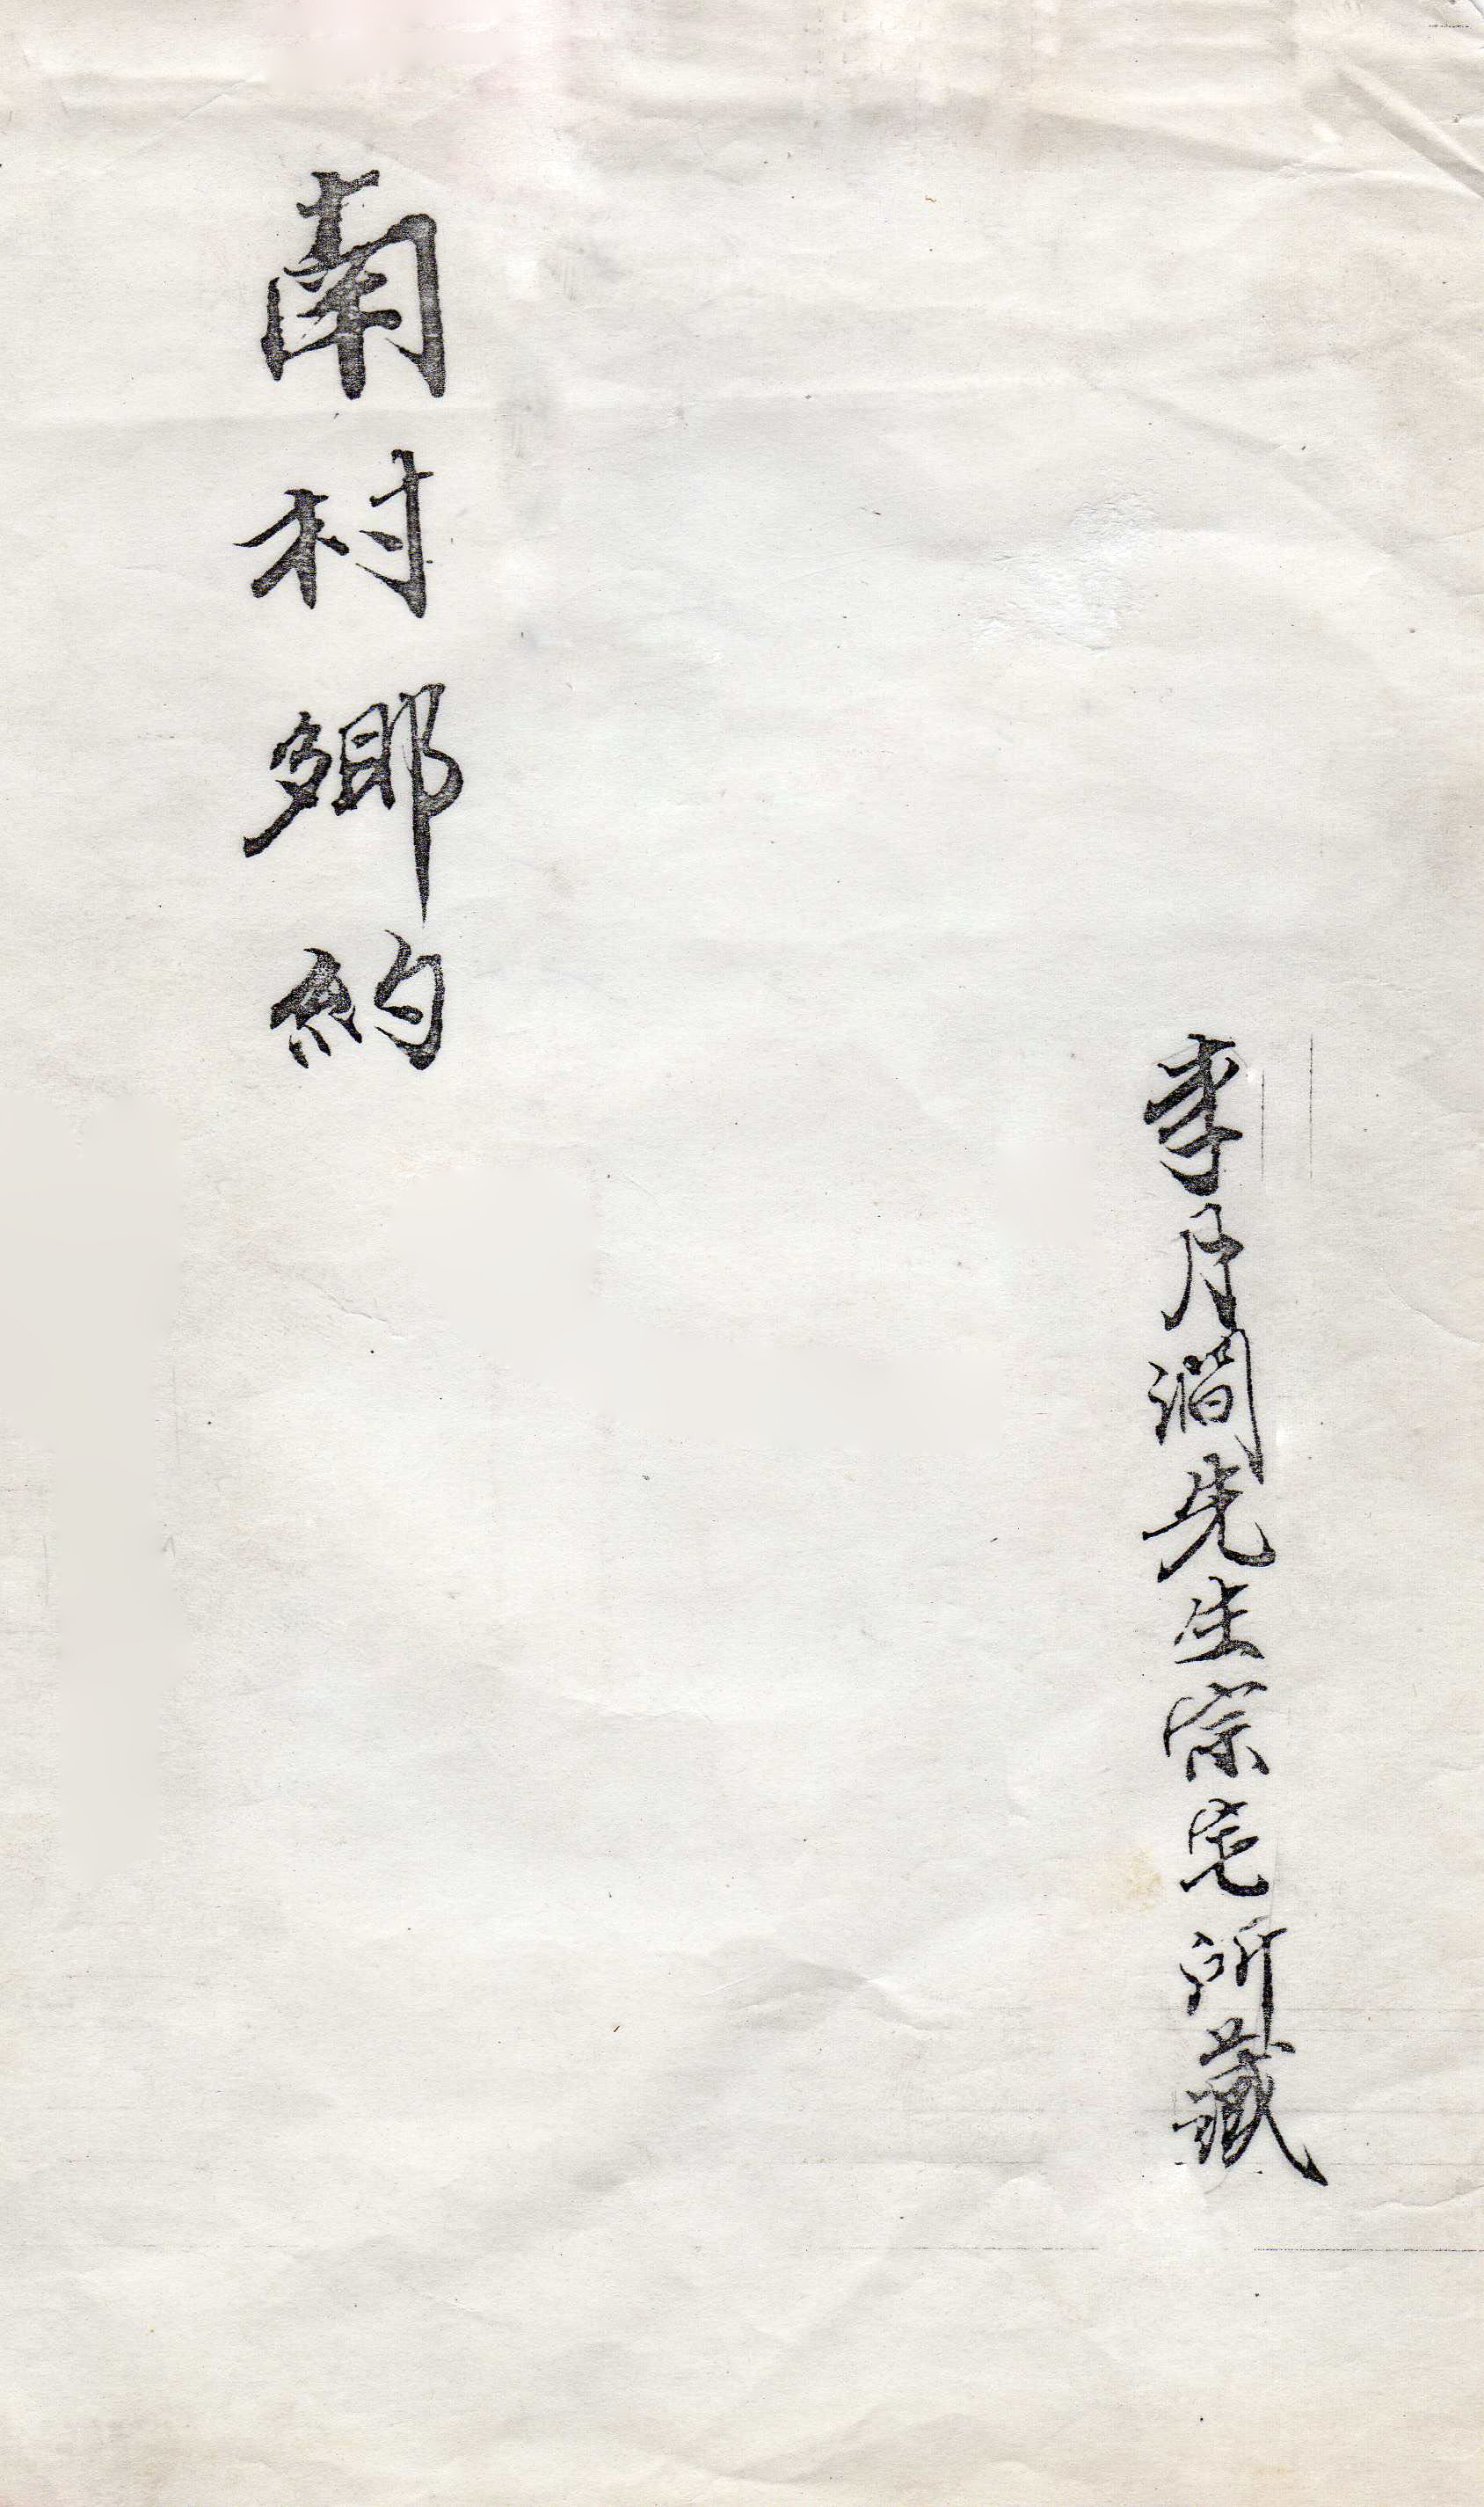 李月澗先生宗宅所藏
南村鄉約